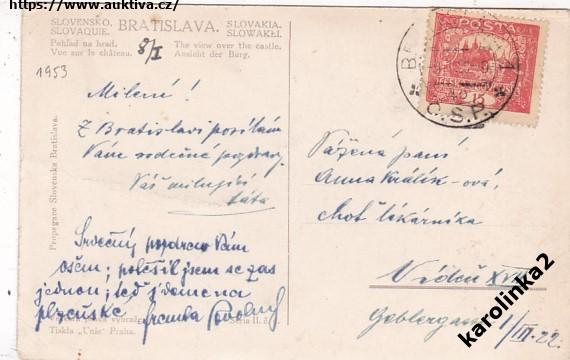 https://www.auktiva.cz/
SLOVENSKO. BRATISLAVA. SLOVAKIA.
SLOVAQUIE. SLOWAKEI.
Pohľad na hrad. The view over the castle.
Vue sur le château. Ansicht der Burg.
8/I
1953
POSTA
15
Č.S.P.
Milení!
Z Bratislavi posílám
Vám srdečné pozdravy
Váš milující
táta
Srdečný pozdrav Vám
všem; potěšil jsem se zas
jednou; teď jdeme na
plzeňské
Vážená paní
Anna Králík-ová,
choť lékárníka
Vídeň XVII
Geblergasse
1/III-22
Propagace Slovenska Bratislava.
Tiskla „Unie" Praha.
Serie II. č.
karolinka2